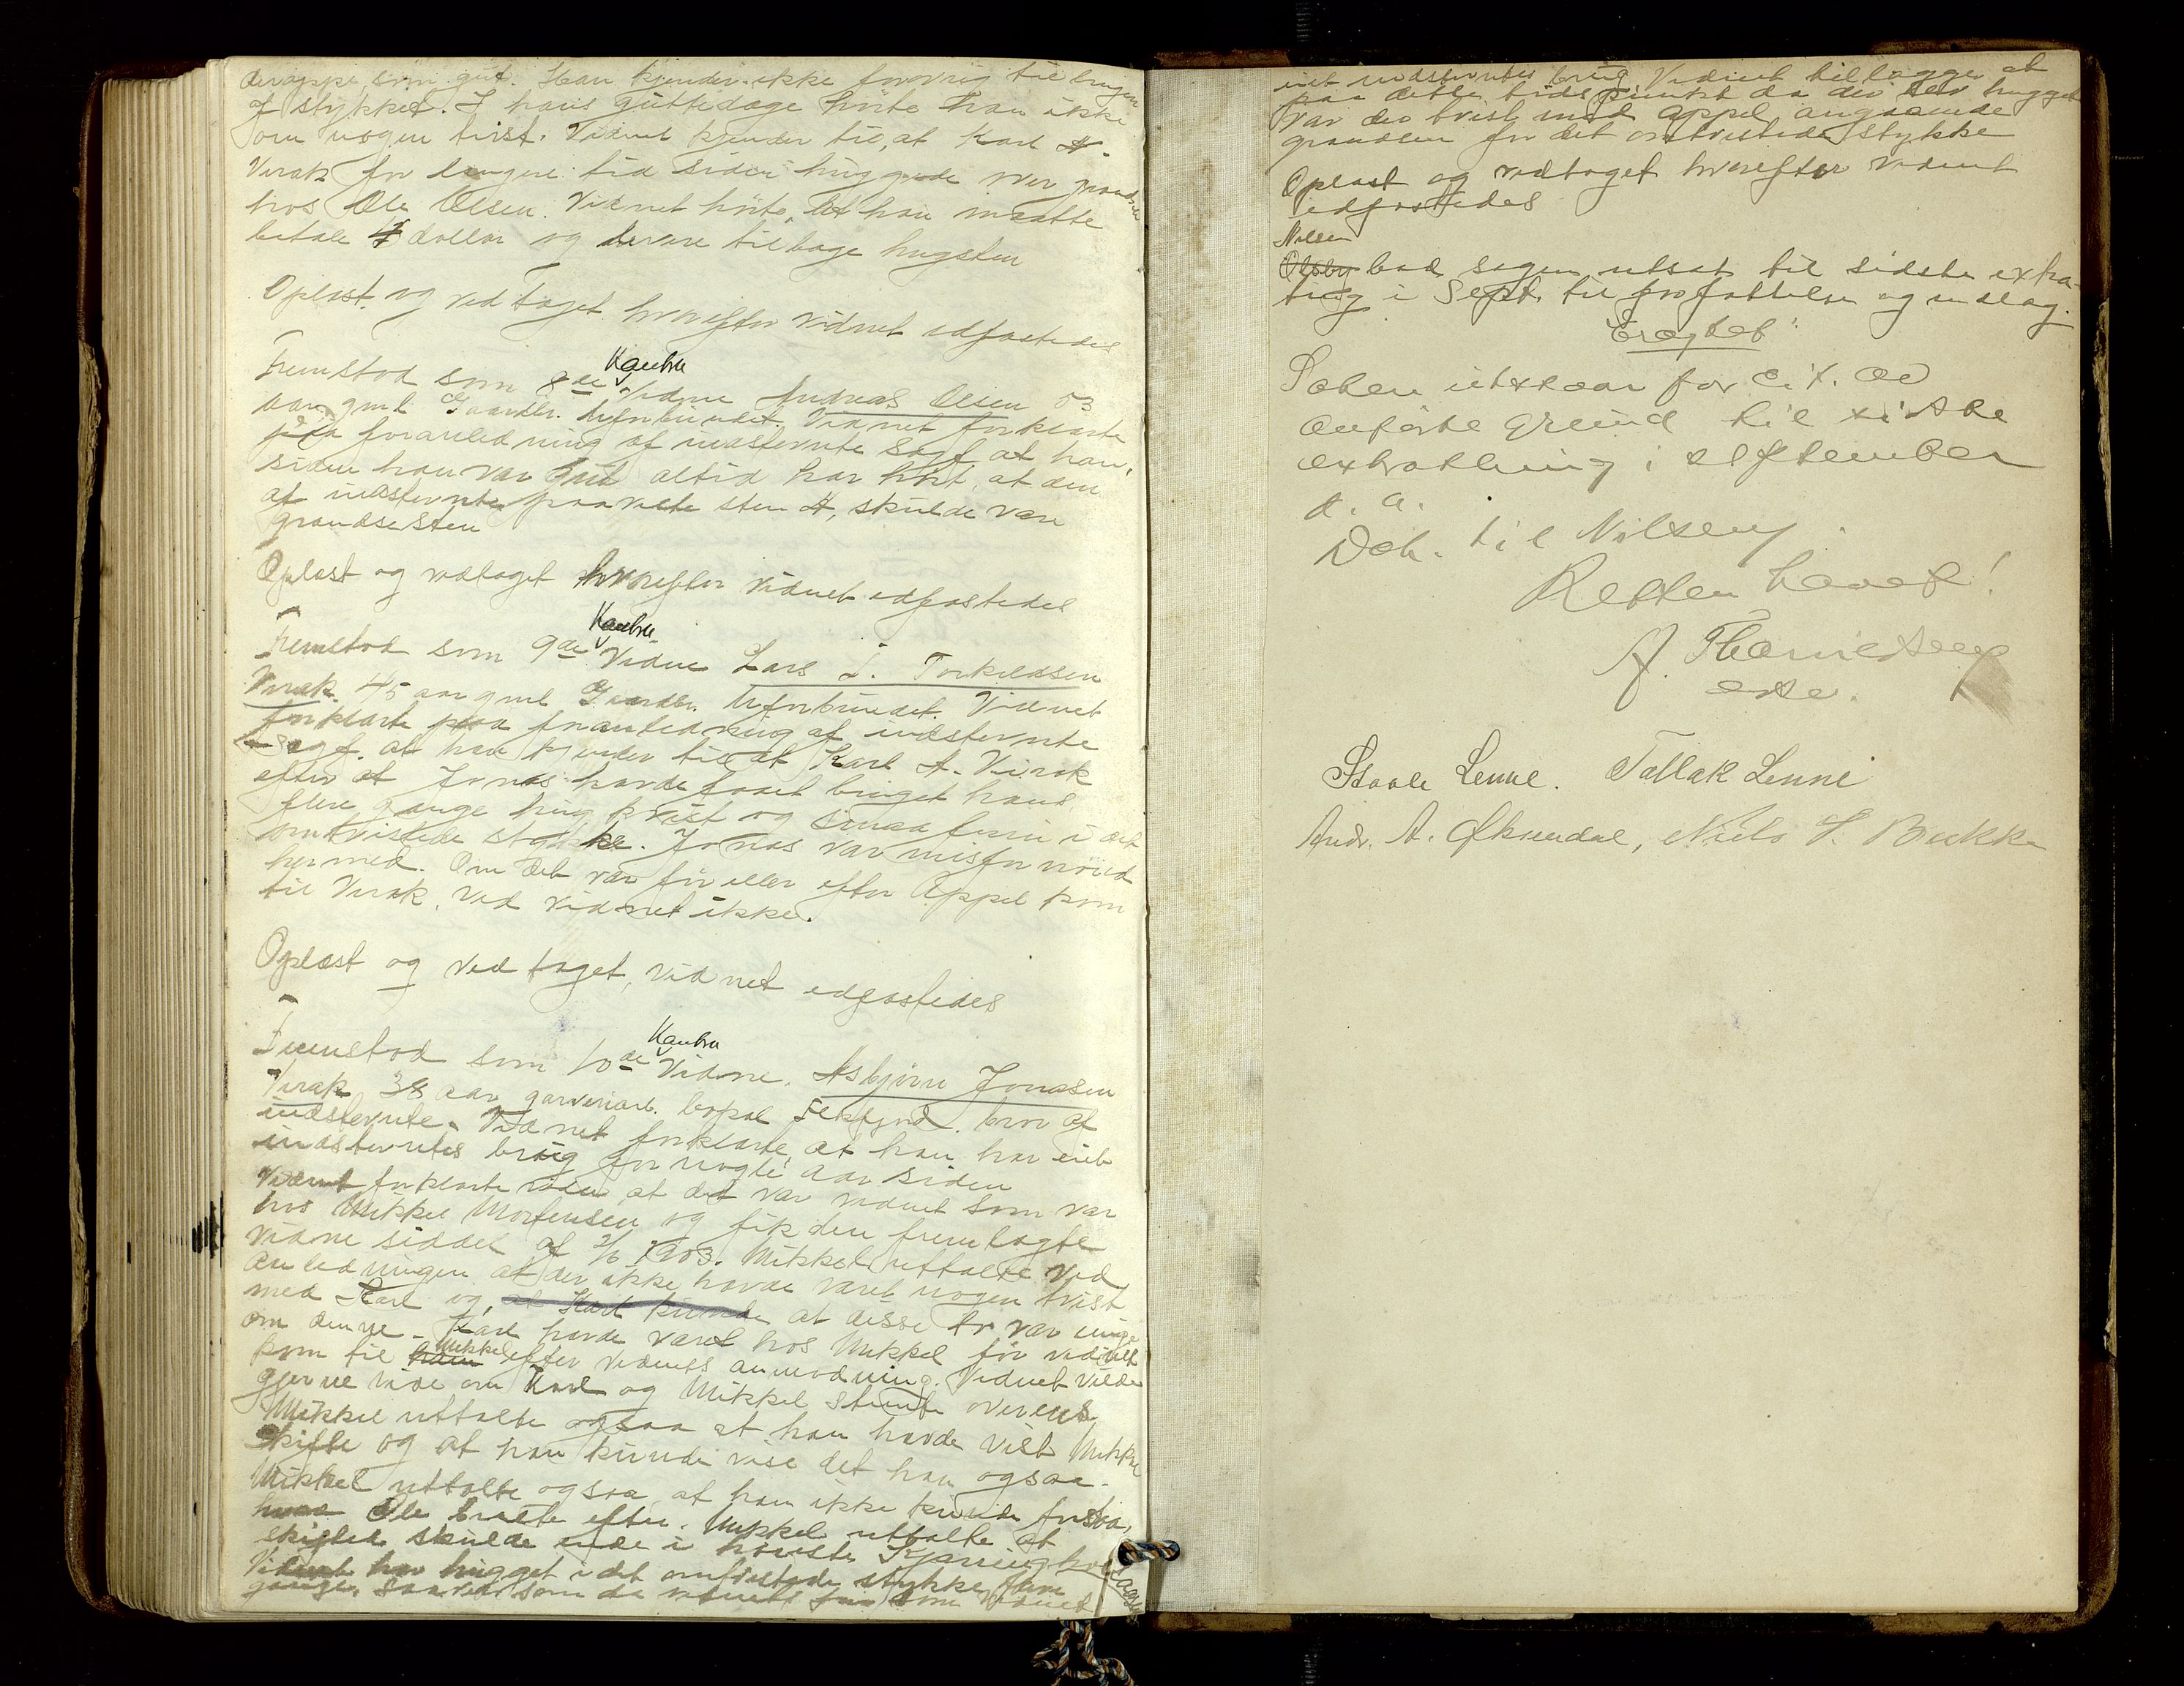 deroppe, som gut. Han kjender ikke forøvrig til brugen
af stykket. I hans guttedage hørte han ikke
om nogen tvist. Vidnet kjender til, at Karl A.
Virak for længere tid siden huggede over grændsen
hos Ole Olsen. Vidnet hørte, at han maatte
betale 4 dollar og levere tilbage hugsten
Oplæst og vedtaget hvorefter vidnet edfæstedes
Fremstod som 8de Kontra Vidne Andreas Olsen 53
aar gml Gaardbr. Uforbundet. Vidnet forklarte
paa foranledning af indstevnte sagf. at han,
siden han var gut altid har hørt, at den
af indstevnte paaviste sten A, skulde være
grændsesten
Oplæst og vedtaget hvorefter vidnet edfæstedes
Fremstod som 9de Kontra Vidne Lars T. Torkildsen
Virak 45 aar gml Gaardbr. Uforbundet. Vidnet
forklarte paa foranledning af indstevnte
sagf. at han kjender til at Karl A. Virak
efter at Jonas havde faaet bruget hans
flere gange hug kvist og smaa furu i det
omtvistede stykke. Jonas var misfornøied
hermed. Om det var før eller efter Appel kom
til Virak, ved vidnet ikke.
Oplæst og vedtaget, vidnet edfæstedes
Fremstod som 10de Kontra Vidne. Asbjørn Jonasen
Virak 38 aar garveriarb. bopæl Flekkefjord. bror af
indstevnte. Vidnet forklarte, at han har eiet
indstevntes brug for nogle aar siden
Vidnet forklarte videre at det var vidnet som var
hos Mikkel Mortensen og fik den fremlagte
vidne siddel af 2/6 1903. Mikkel uttalte ved
anledningen at der ikke havde været nogen tvist
med Karl og, at Karl kunde at disse to var enige
om denne. Karl havde været hos Mikkel før vidnet
kom til ham Mikkel efter vidnets anmodning. Vidnet vilde
gjerne vide om Karl og Mikkel stemte overens
Mikkel uttalte ogsaa at han havde vist Mikkel
skifte og at han kunde vise det han ogsaa.
Mikkel uttalte ogsaa, at han ikke kunde forstaa,
hvad Ole trætte efter. Mikkel uttalte at
skiftet skulde ende i høieste Kjærringhol
Vidnet har hugget i det omtvistede stykke flere
gange, saavel som da vidnets far som vidnet
eiet indstevntes brug. Vidnet tillægger at
paa dette tidspunkt da der blev hugget
var der tvist med Appel angaaende
grændsen for det omtvistede stykke
Oplæst og vedtaget hvorefter vidnet
edfæstedes
Nilsen
Olsby bad sagen utsat til sidste extra-
ting i Sept. til forfattelse og indlæg.
Eragtet:
Saken utstaar for cit. av
anførte grund til sidste
extrathing i september
d. a.
Dok. til Nilsen.
Retten hævet!
A. Thanildsen
cst.
Staale Lenne. Tallak Lenne
Andr. A. Øksendal, Niels T. Bakke